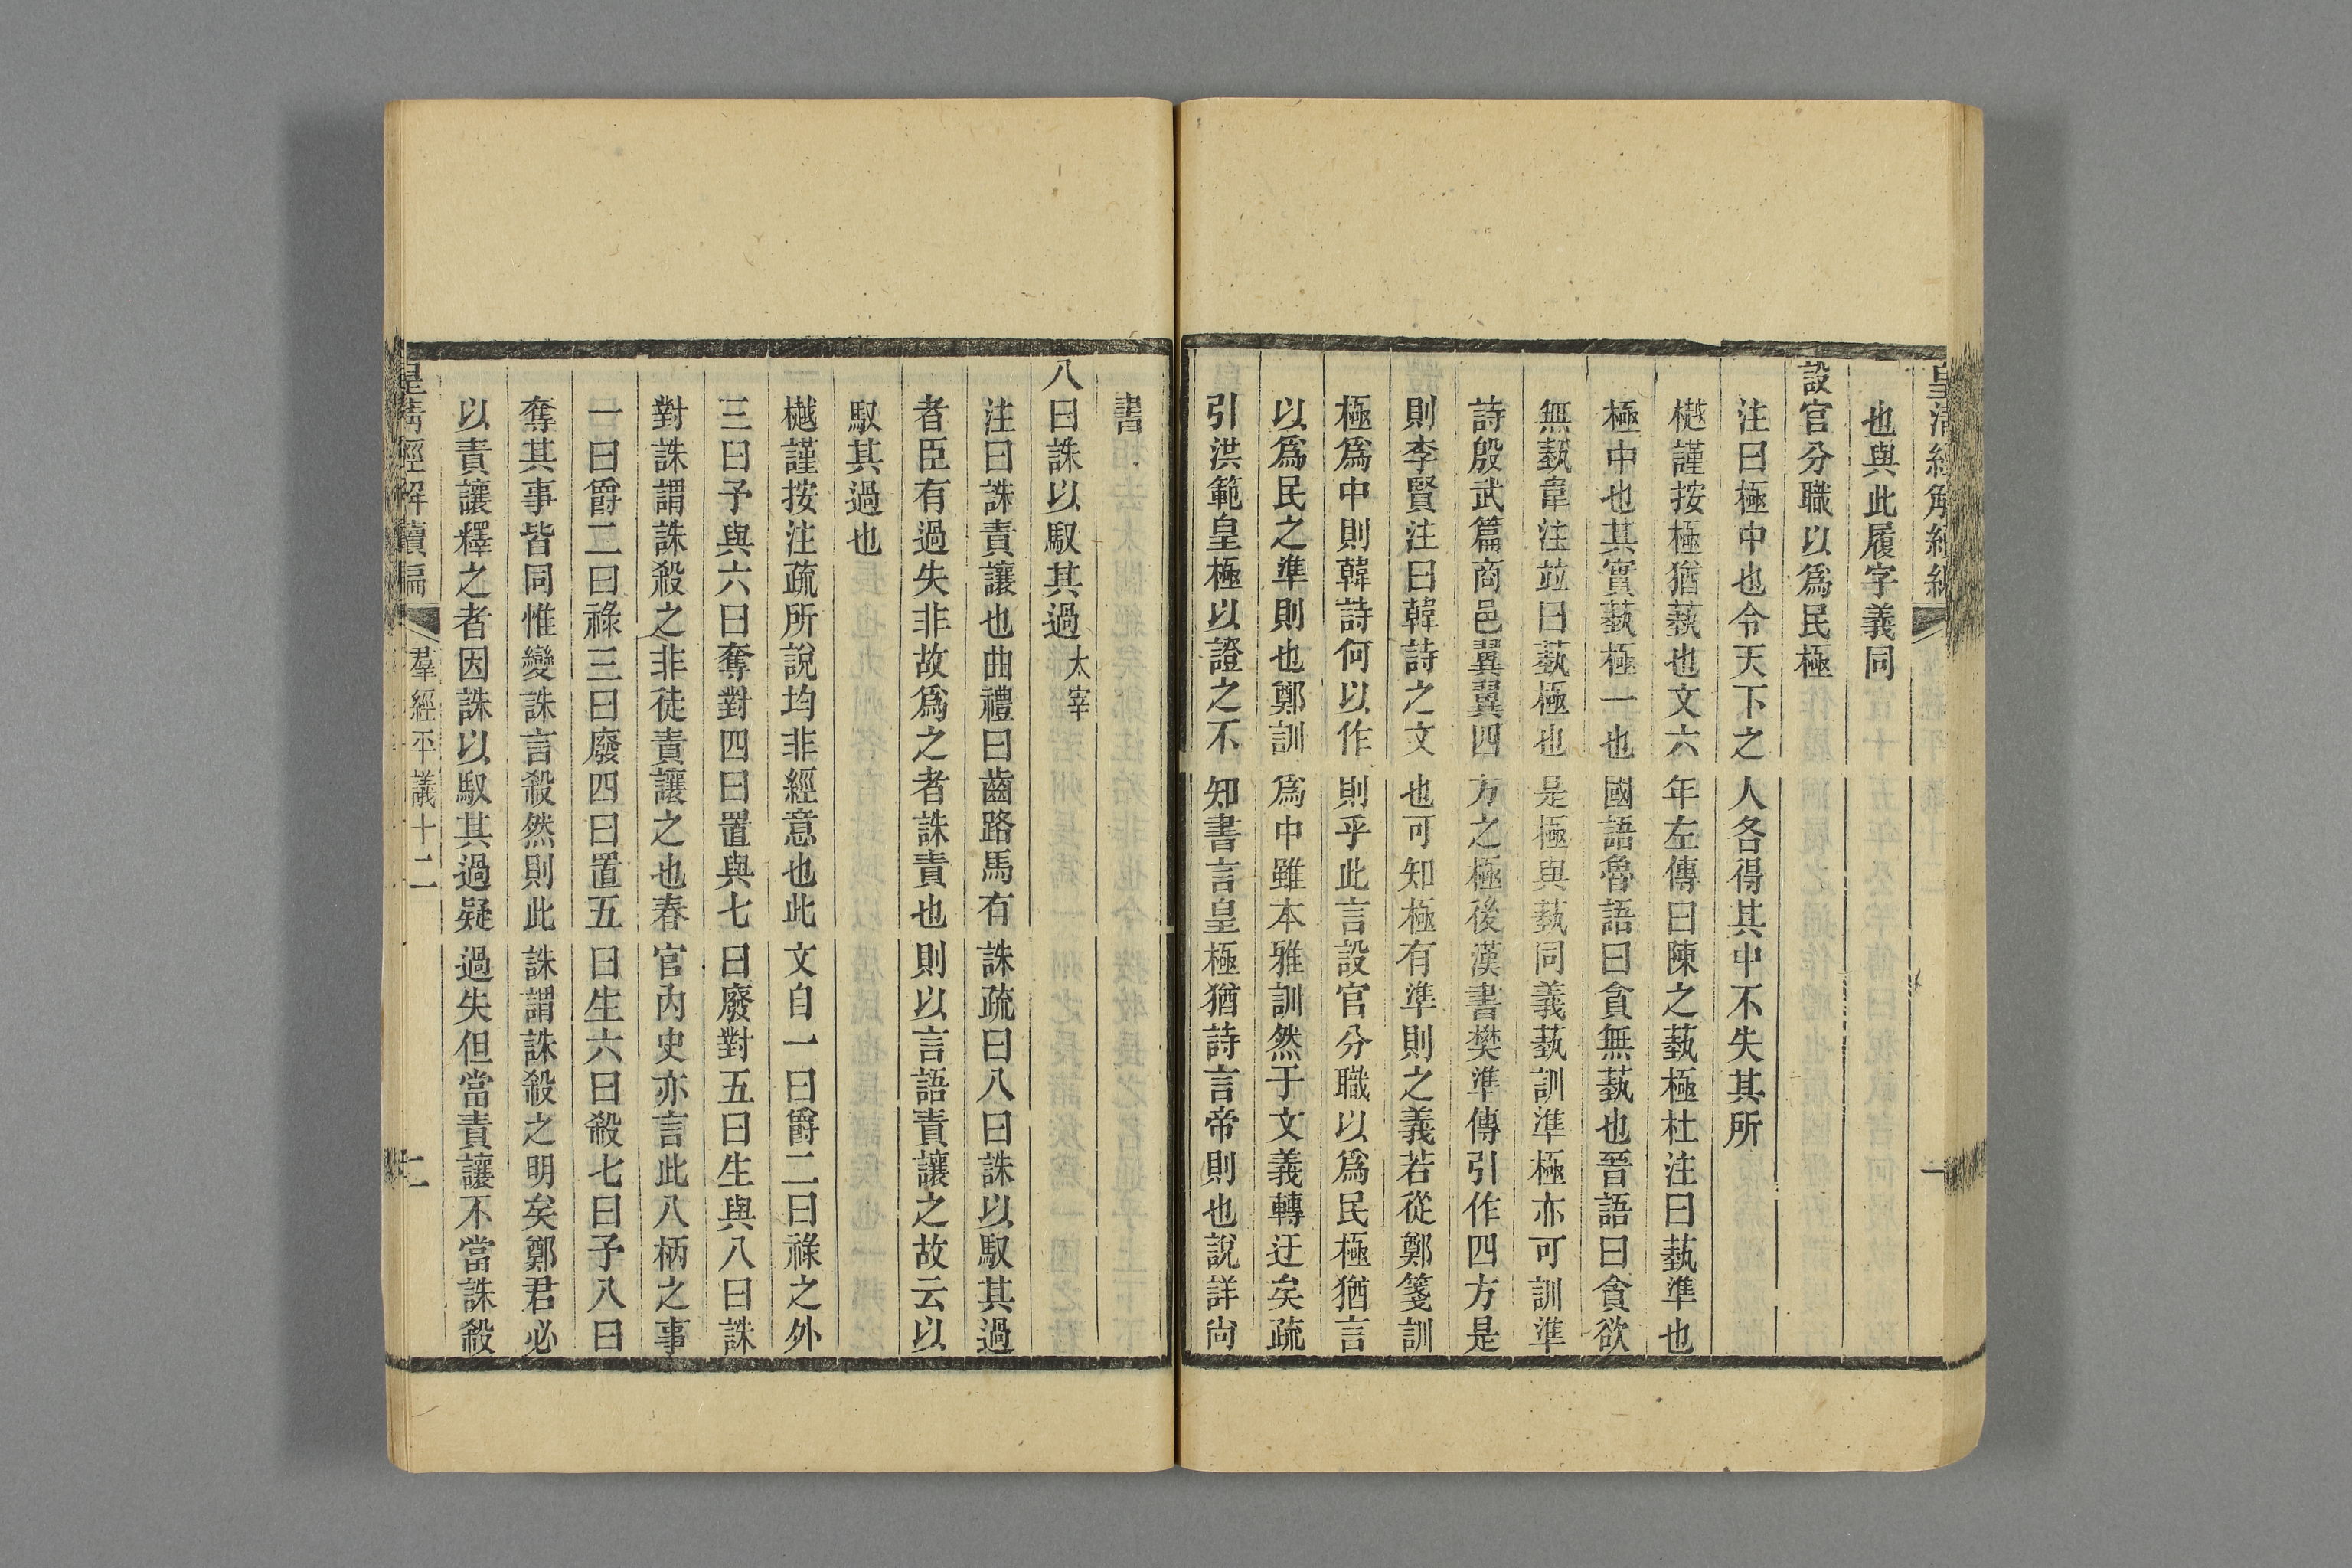 也與此履字義同
設官分職以爲民極
注曰極中也令天下之人各得其中不失其所
樾謹按極猶蓺也文六年左傳曰陳之蓺極杜注曰蓺準也
極中也其實蓺極一也國語魯語曰貪無蓺也晉語曰貪欲
無蓺韋注竝曰蓺極也是極與蓺同義蓺訓準極亦可訓準
詩殷武篇商邑翼翼四方之極後漢書樊準傳引作四方是
則李賢注曰韓詩之文也可知極有準則之義若從鄭箋訓
極爲中則韓詩何以作則乎此言設官分職以爲民極猶言
以爲民之準則也鄭訓爲中雖本雅訓然于文義轉迂矣疏
引洪範皇極以證之不知書言皇極猶詩言帝則也說詳尙
書
八曰誅以馭其過 太宰
注曰誅責讓也曲禮曰齒路馬有誅疏曰八曰誅以馭其過
者臣有過失非故爲之者誅責也則以言語責讓之故云以
馭其過也
樾謹按注疏所說均非經意也此文自一曰爵二曰祿之外
三曰予與六曰奪對四曰置與七曰廢對五曰生與八曰誅
對誅謂誅殺之非徒責讓之也春官內史亦言此八柄之事
一曰爵二曰祿三曰廢四曰置五曰生六曰殺七曰予八曰
奪其事皆同惟變誅言殺然則此誅謂誅殺之明矣鄭君必
以責讓釋之者因誅以馭其過疑過失但當責讓不當誅殺
皇清經解續編 羣經平議十二 二